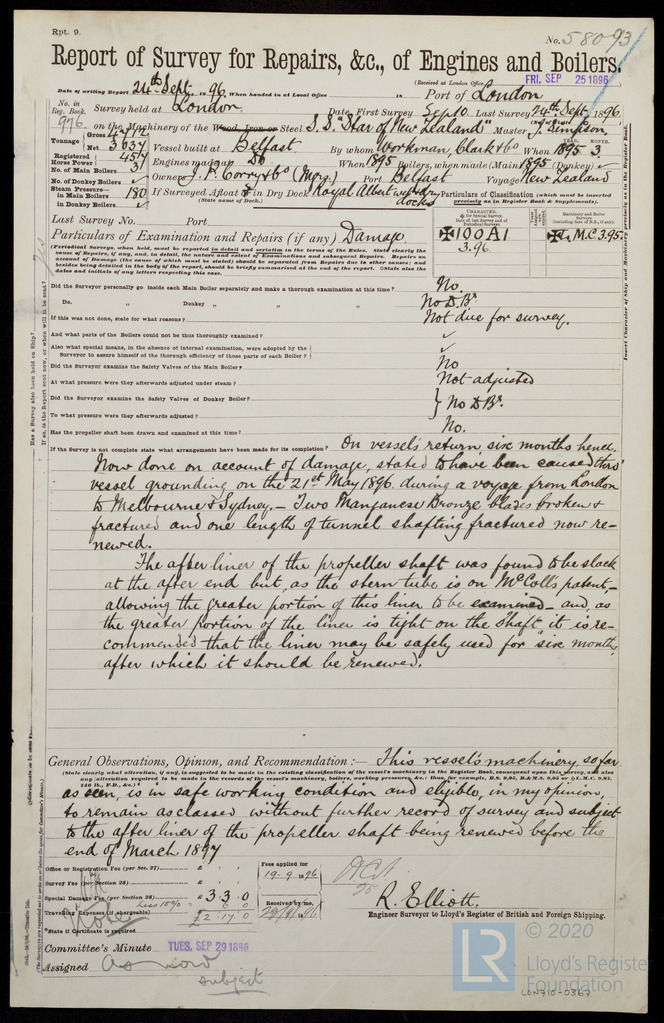 Rpt. 9.
No. 58093
Report of Survey for Repairs, &c., of Engines and Boilers.
(Received at London Office FRI. SEP 25 1896
Date of writing Report 24th Sept. 1896. When handed in at Local Office in Port of London
No. in Reg. Book. Survey held at London Date, First Survey Sep 10 Last Survey 24th Sept. 1896
976 on the Machinery of the Wood, Iron or Steel S.S. "Star of New Zealand" Master J. Simpson,
Tonnage Gross
Net 3037 Vessel built at Belfast By whom Workman, Clark & Co When 1895 3
Registered Horse Power 457 Engines made Do When 1895 Boilers, when made (Main) 1895 (Donkey) ✓
No. of Main Boilers 3 Owners J. P. Corry & Co (Mgrs.) Port Belfast Voyage New Zealand
No. of Donkey Boilers ✓
Steam Pressure in Main Boilers 180 If Surveyed Afloat & in Dry Dock Royal Albert wet & dry docks
(State name of Dock.)
in Donkey Boilers ✓
Particulars of Classification (which must be inserted precisely as in Register Book & Supplements).
Last Survey No. Port
Particulars of Examination and Repairs (if any) Damage
✠100A1
3.96
✠L.M.C 3.95.
(Periodical Surveys, when held, must be reported in detail and seriatim in the terms of the Rules. State clearly the cause of Repairs, if any, and, in detail, the nature and extent of Examinations and subsequent Repairs. Repairs on account of Damage (the cause of which must be stated) should be separated from Repairs due to other causes; and besides being detailed in the body of the report, should be briefly summarised at the end of the report. State also the dates and initials of any letters respecting this case.
Did the Surveyor personally go inside each Main Boiler separately and make a thorough examination at this time? No.
Do. Donkey " " " No D.Br
If this was not done, state for what reasons? Not due for survey.
And what parts of the Boilers could not be thus thoroughly examined? ✓
Also what special means, in the absence of internal examination, were adopted by the Surveyor to assure himself of the thorough efficiency of those parts of each Boiler? ✓
Did the Surveyor examine the Safety Valves of the Main Boiler? No
At what pressure were they afterwards adjusted under steam? Not adjusted
Did the Surveyor examine the Safety Valves of Donkey Boiler? } No D.Br.
To what pressure were they afterwards adjusted?
Has the propeller shaft been drawn and examined at this time? No.
If the Survey is not complete state what arrangements have been made for its completion? On vessel's return six months hence.
Now done on account of damage, stated to have been caused thro'
vessel grounding on the 21st May 1896 during a voyage from London
to Melbourne & Sydney. – Two Manganese Bronze blades broken &
fractured and one length of tunnel shafting fractured now re-
newed.
The after liner of the propeller shaft was found to be slack
at the after end but, as the stern tube is on McColl's patent, –
allowing the greater portion of this liner to be examined – and, as
the greater portion of the liner is tight on the shaft, it is re-
commended that the liner may be safely used for six months
after which it should be renewed.
General Observations, Opinion, and Recommendation :— This vessel's machinery, so far
(State clearly what alteration, if any, is suggested to be made in the existing classification of the vessel's machinery in the Register Book, consequent upon this survey,
as seen, is in safe working condition and eligible, in my opinion,
to remain as classed without further record of survey and subject
to the after liner of the propeller shaft being renewed before the
end of March 1897
Office or Registration Fee (per Sec. 27)
Survey Fee (per Section 28)
Special Damage Fee (per Section 28) £3 3 0
Less 10% 6 0
Travelling Expenses (if chargeable) £2 17 0
Fees applied for
19-9-1896
Received by me,
State if Certificate is required
R. Elliott.
Engineer Surveyor to Lloyd's Register of British and Foreign Shipping.
Committee's Minute TUES. SEP 29 1896
Assigned As now
subject
© 2020
LR
Lloyd's Register
Foundation
LON710-0367